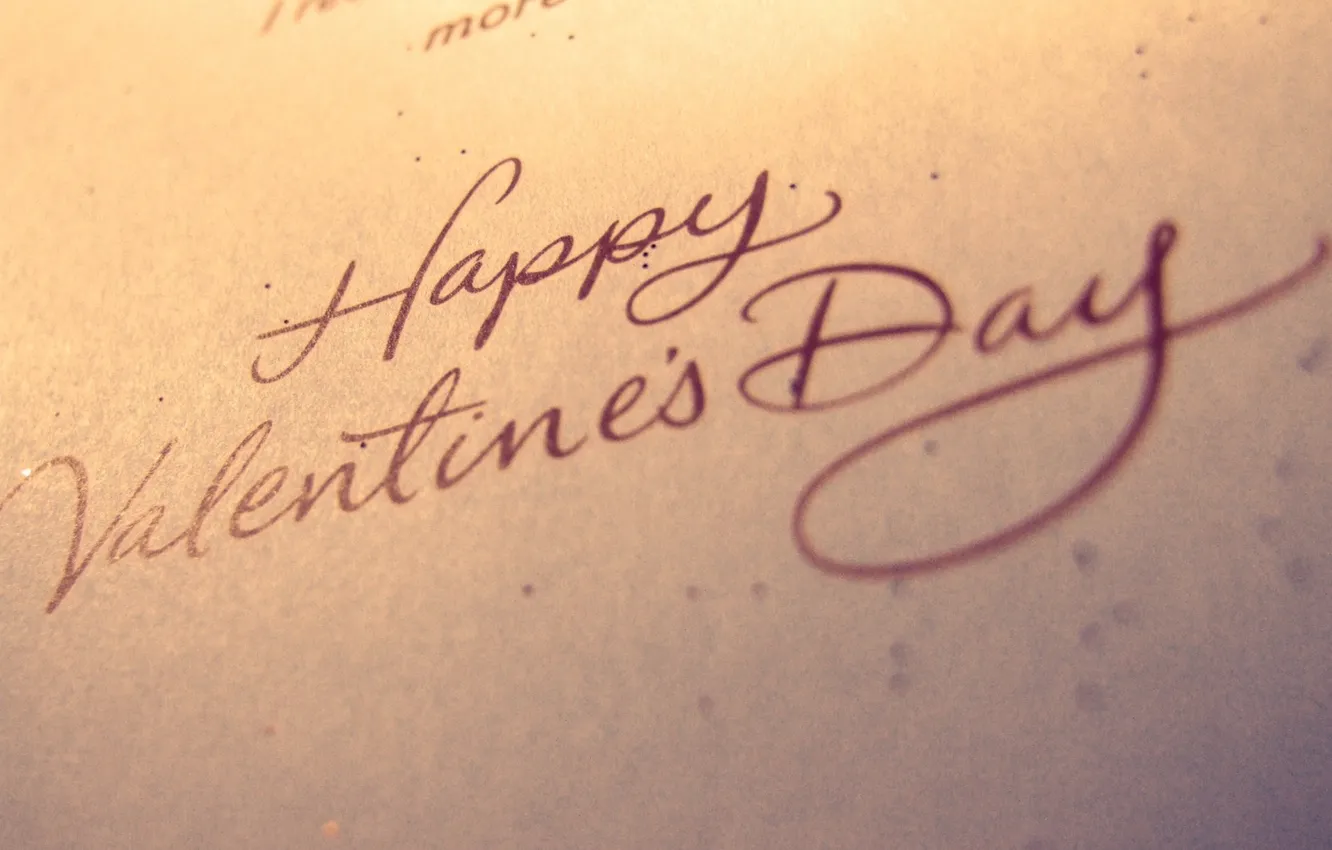 more
Happy
Valentine's Day